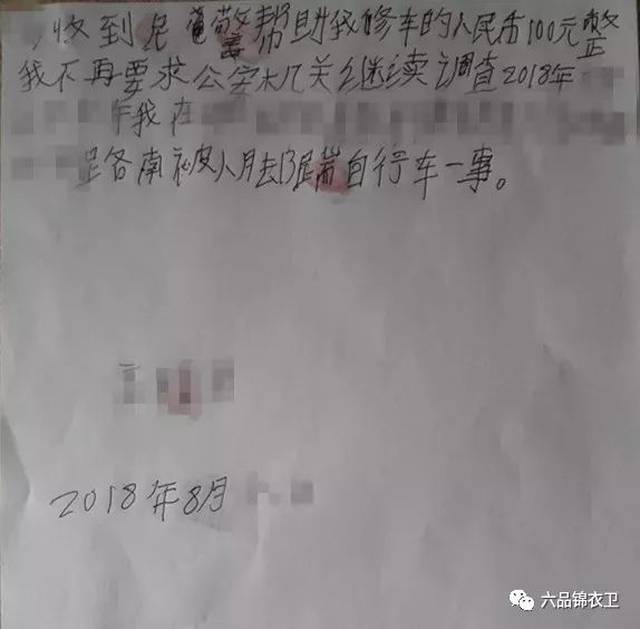 收到 警帮助我修车的人民币100元整
我不再要求公安机关继续调查2018年
午我在
路南被人用脚踹自行车一事。
2018年8月
六品锦衣卫